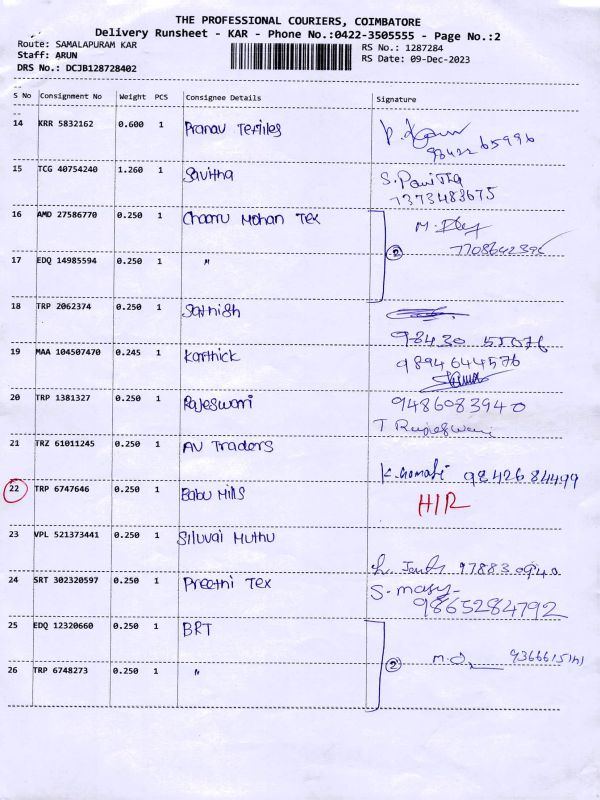 THE PROFESSIONAL COURIERS, COIMBATORE
Delivery Runsheet - KAR - Phone No.:0422-3505555 - Page No.:2
Route: SAMALAPURAM KAR RS No.: 1287284
Staff: ARUN RS Date: 09-Dec-2023
DRS No.: DCJB128728402
S No Consignment No Weight PCS Consignee Details Signature
14 KRR 5832162 0.600 1 Pranav Textiles
98422 65996
15 TCG 40754240 1.260 1 Savitha S. Pavithra
7373483675
16 AMD 27586770 0.250 1 Chaaru Mohan Tex M.
②
17 EDQ 14985594 0.250 1 "
18 TRP 2062374 0.250 1 Sathish
98430 55076
19 MAA 104507470 0.245 1 Karthick 9894644576
20 TRP 1381327 0.250 1 Rajeswari 9486083940
T Rajeswari
21 TRZ 61011245 0.250 1 AV Traders
K. Gomathi 9842684499
22 TRP 6747646 0.250 1 Babu Mills H/R
23 VPL 521373441 0.250 1 Siluvai Muthu
24 SRT 302320597 0.250 1 Preethi Tex S. mary
9865284792
25 EDQ 12320660 0.250 1 BRT
②
26 TRP 6748273 0.250 1 "